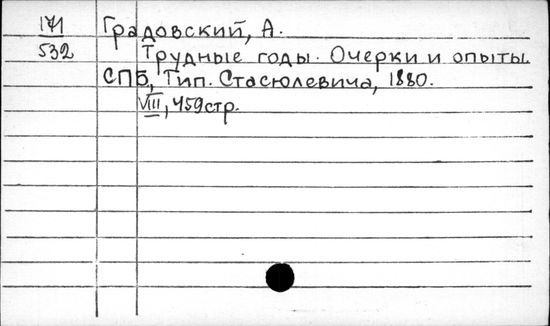 171 Градовский, А.
532 Трудные годы. Очерки и опыты.
СПБ, Тип. Стасюлевича, 1880.
VIII, 459 стр.